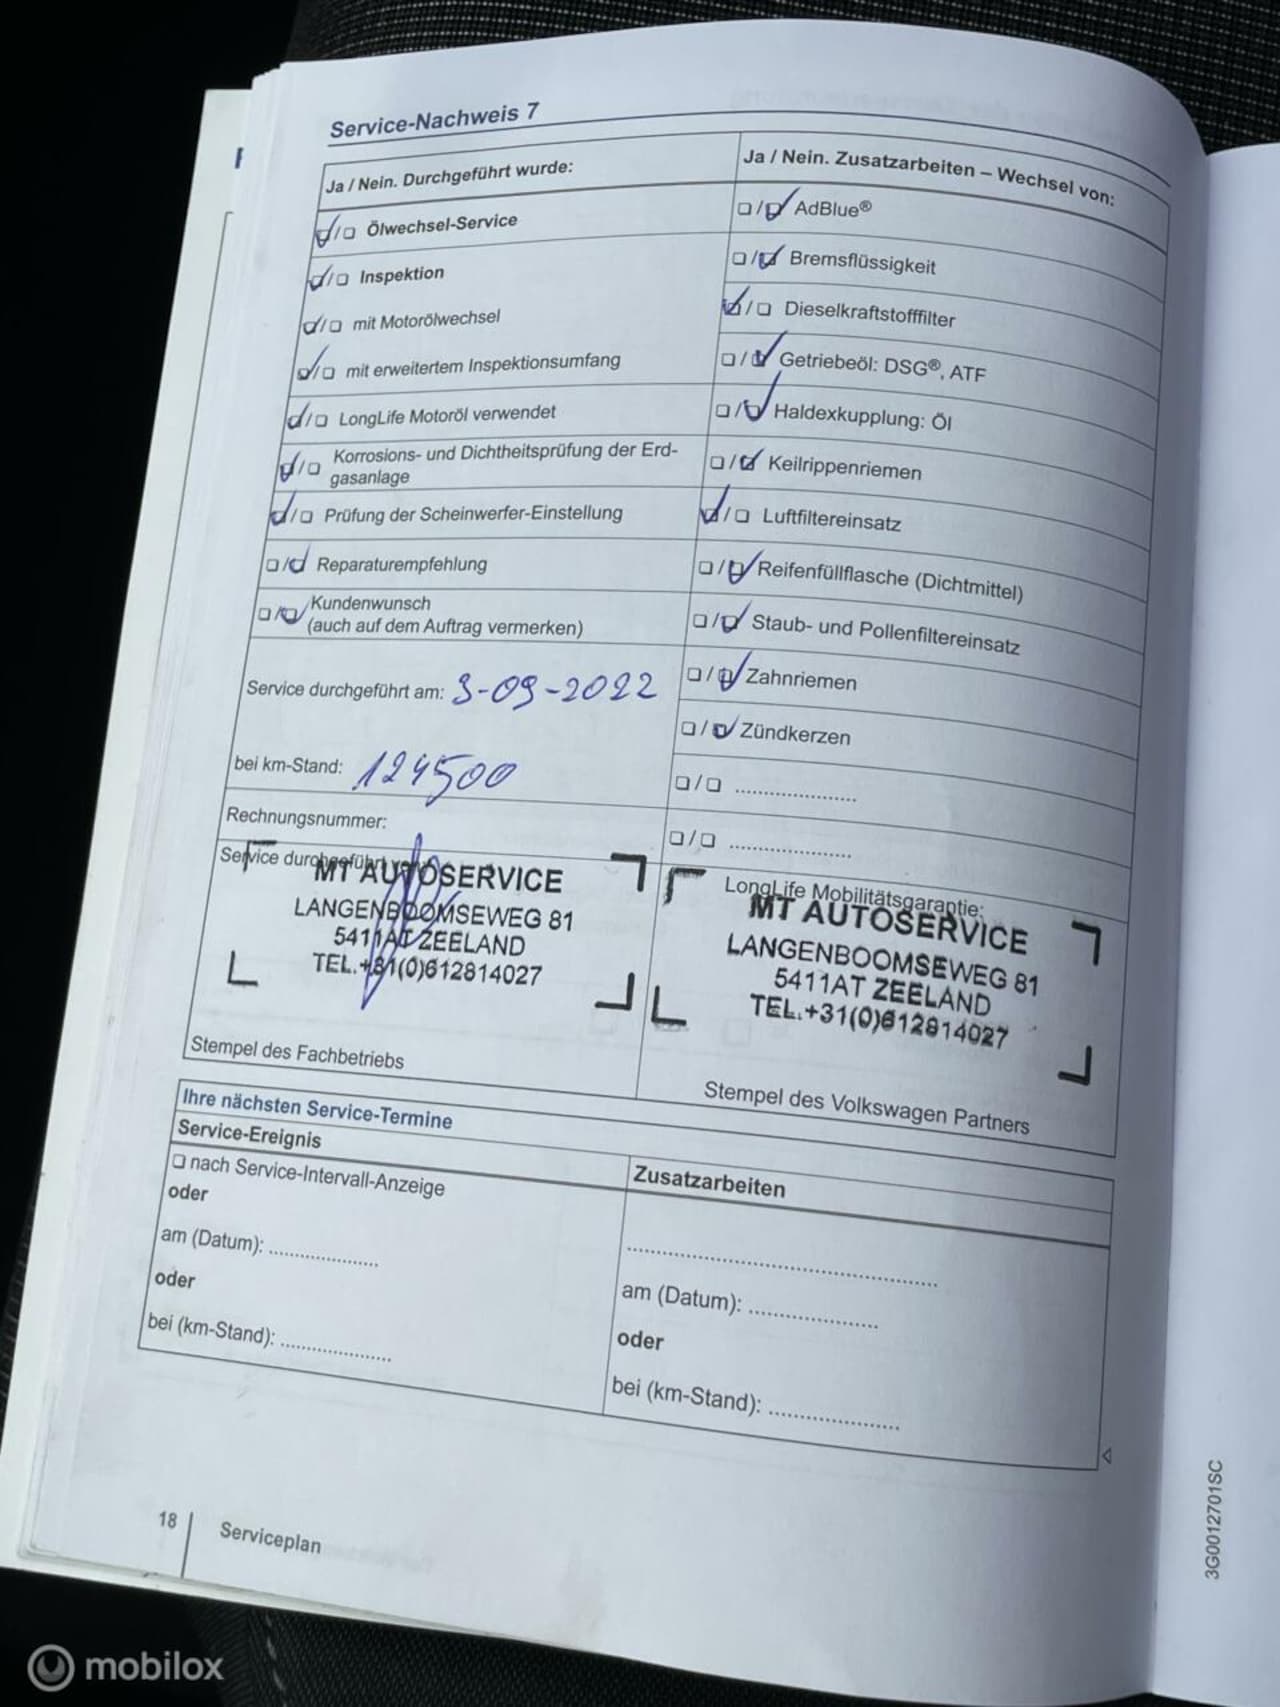 Service-Nachweis 7
Ja / Nein. Durchgeführt wurde:
Ölwechsel-Service
Inspektion
mit Motorölwechsel
mit erweitertem Inspektionsumfang
LongLife Motoröl verwendet
Korrosions- und Dichtheitsprüfung der Erd-
gasanlage
Prüfung der Scheinwerfer-Einstellung
Reparaturempfehlung
Kundenwunsch
(auch auf dem Auftrag vermerken)
Service durchgeführt am: 3-09-2022
bei km-Stand: 124500
Rechnungsnummer:
Service durchgeführt von:
MT AUTOSERVICE
LANGENBOOMSEWEG 81
5411AT ZEELAND
TEL.+31(0)612814027
Stempel des Fachbetriebs
Ja / Nein. Zusatzarbeiten – Wechsel von:
AdBlue®
Bremsflüssigkeit
Dieselkraftstofffilter
Getriebeöl: DSG®, ATF
Haldexkupplung: Öl
Keilrippenriemen
Luftfiltereinsatz
Reifenfüllflasche (Dichtmittel)
Staub- und Pollenfiltereinsatz
Zahnriemen
Zündkerzen
LongLife Mobilitätsgarantie:
MT AUTOSERVICE
LANGENBOOMSEWEG 81
5411AT ZEELAND
TEL.+31(0)612814027
Stempel des Volkswagen Partners
Ihre nächsten Service-Termine
Service-Ereignis
nach Service-Intervall-Anzeige
oder
am (Datum): ....................
oder
bei (km-Stand): ....................
Zusatzarbeiten
am (Datum): ....................
oder
bei (km-Stand): ....................
18
Serviceplan
3G0012701SC
mobilox